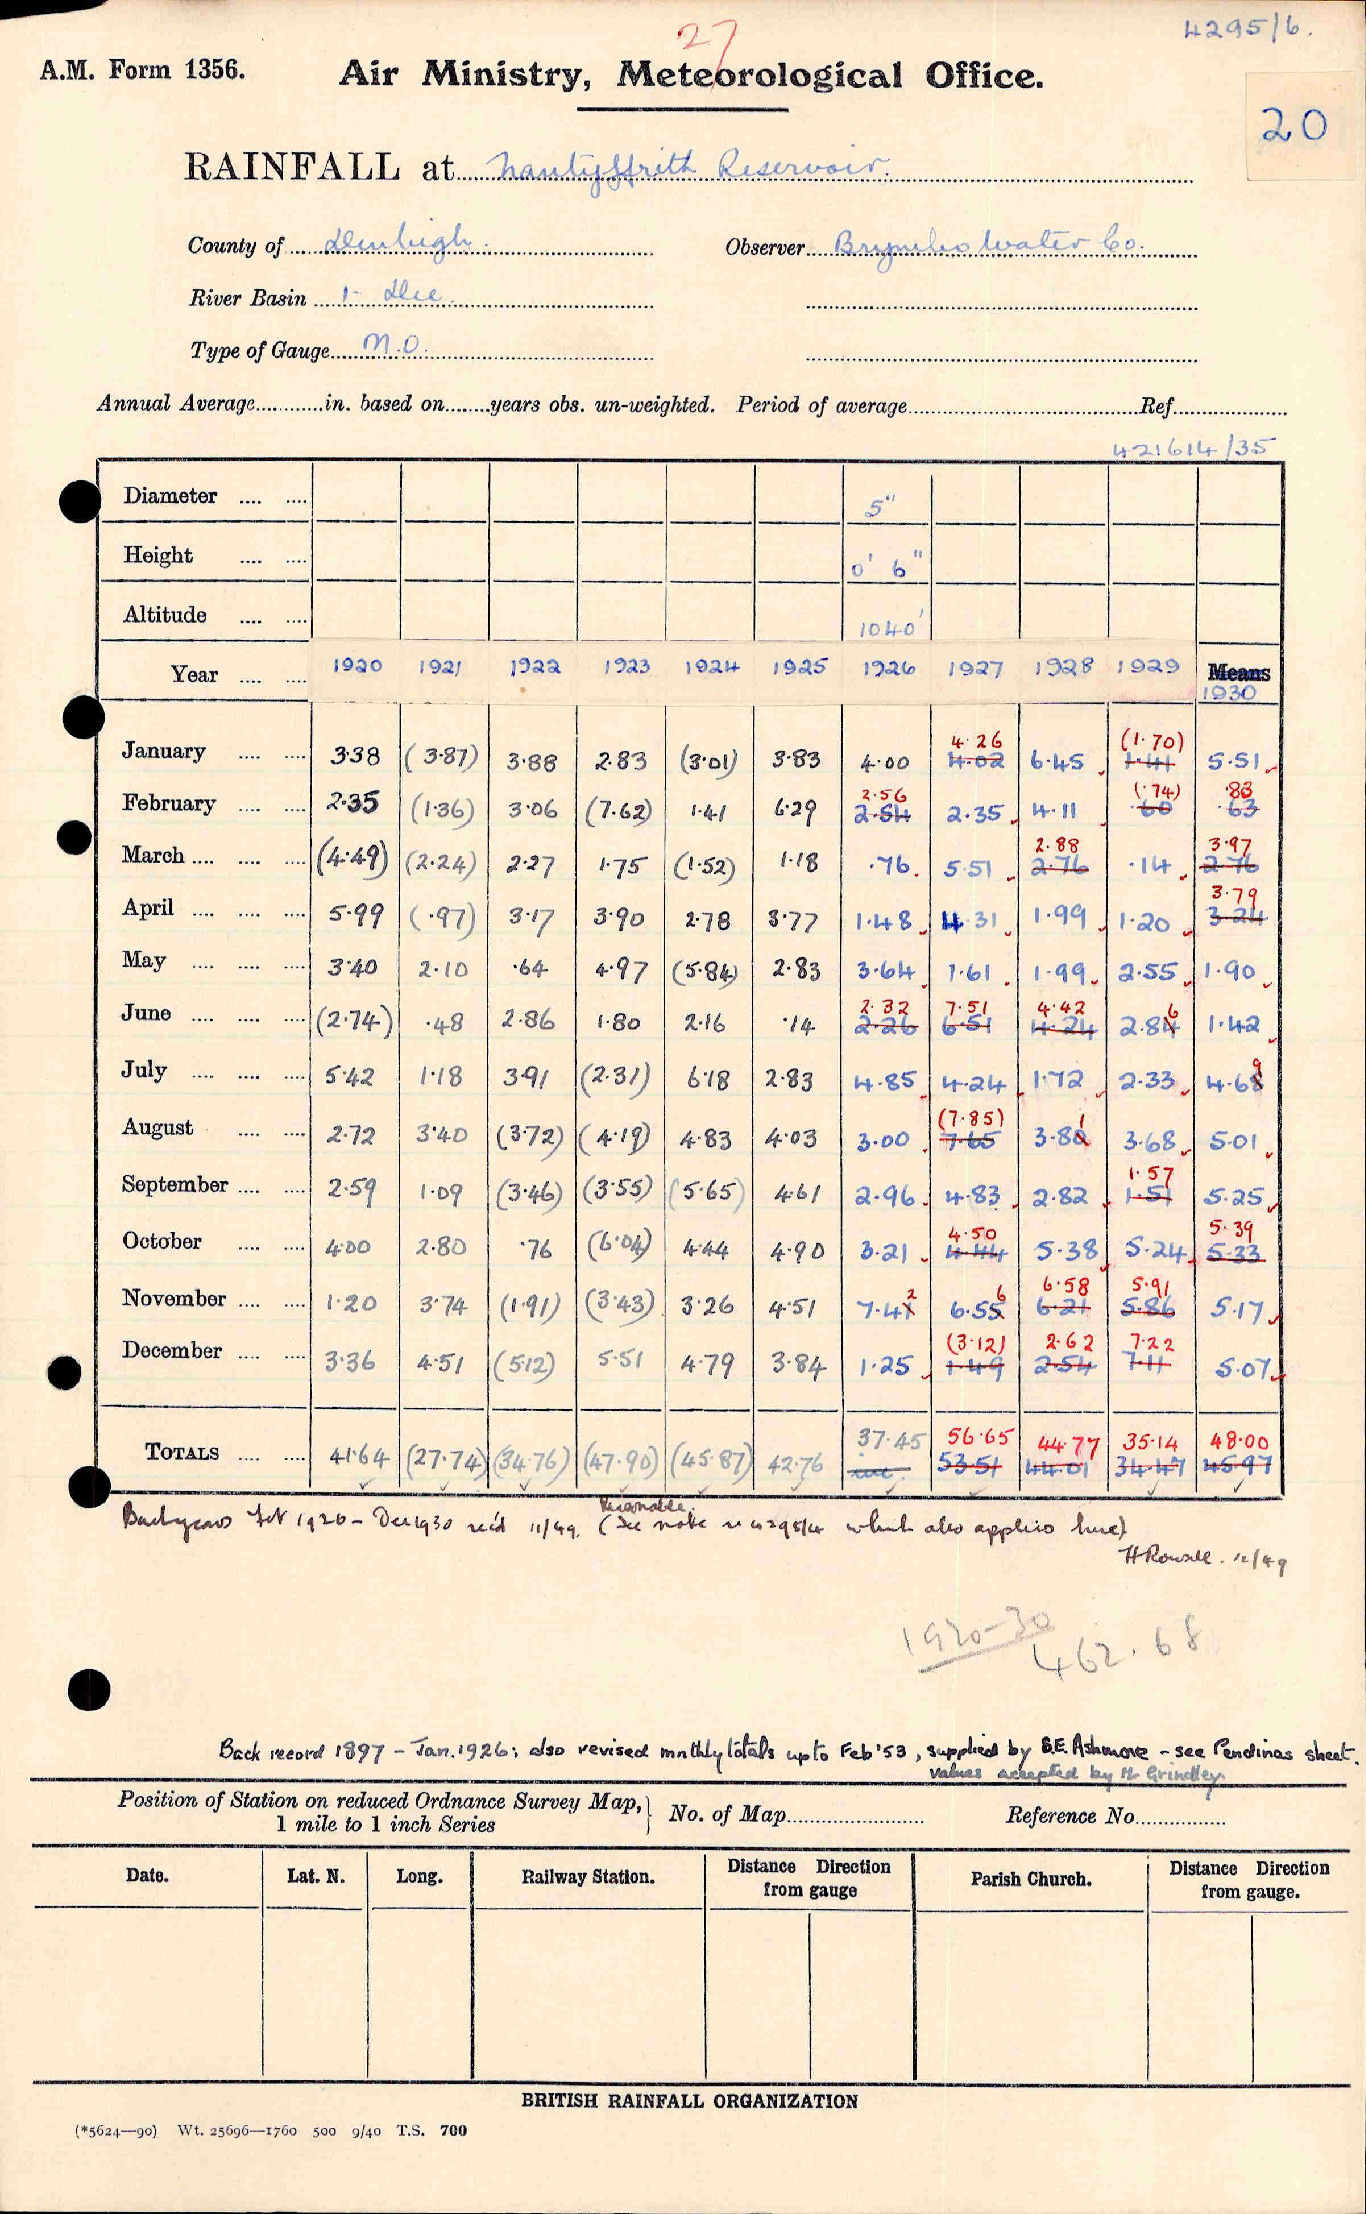 27
4295/6.
A.M. Form 1356.
Air Ministry, Meteorological Office.
20
RAINFALL at Nantyffrith Reservoir.
County of Denbigh. Observer Brymbo Water Co.
River Basin 1- Dee.
Type of Gauge M.O.
Annual Average in. based on years obs. un-weighted. Period of average Ref
421614/35
Diameter 5"
Height 0' 6"
Altitude 1040'
Year 1920 1921 1922 1923 1924 1925 1926 1927 1928 1929 Means
1930
4.26 (1.70)
January 3.38 (3.87) 3.88 2.83 (3.01) 3.83 4.00 4.02 6.45 1.41 5.51
2.56 (.74) .83
February 2.35 (1.36) 3.06 (7.62) 1.41 6.29 2.54 2.35 4.11 .60 .63
2.88 3.97
March (4.49) (2.24) 2.27 1.75 (1.52) 1.18 .76 5.51 2.76 .14 2.76
3.79
April 5.99 (.97) 3.17 3.90 2.78 3.77 1.48 4.31 1.99 1.20 3.24
May 3.40 2.10 .64 4.97 (5.84) 2.83 3.64 1.61 1.99 2.55 1.90
2.32 7.51 4.42 6
June (2.74) .48 2.86 1.80 2.16 .14 2.26 6.51 4.24 2.84 1.42
9
July 5.42 1.18 3.91 (2.31) 6.18 2.83 4.85 4.24 1.72 2.33 4.68
(7.85) 1
August 2.72 3.40 (3.72) (4.19) 4.83 4.03 3.00 7.65 3.80 3.68 5.01
1.57
September 2.59 1.09 (3.46) (3.55) (5.65) 4.61 2.96 4.83 2.82 1.51 5.25
4.50 5.39
October 4.00 2.80 .76 (6.04) 4.44 4.90 3.21 4.44 5.38 5.24 5.33
2 6 6.58 5.91
November 1.20 3.74 (1.91) (3.43) 3.26 4.51 7.41 6.55 6.21 5.86 5.17
(3.12) 2.62 7.22
December 3.36 4.51 (5.12) 5.51 4.79 3.84 1.25 1.49 2.54 7.11 5.07
37.45 56.65 44.77 35.14 48.00
TOTALS 41.64 (27.74) (34.76) (47.90) (45.87) 42.76 53.51 44.01 34.47 45.97
Reasonable.
Backyears Feb 1926 - Dec 1930 rec'd 11/49. (See note on 4295/4 which also applies here)
H Rowsell. 11/49
1920-30
462.68
Back record 1897 - Jan. 1926; also revised monthly totals up to Feb '53, supplied by S.E. Ashmore - see Pendinas sheet.
values accepted by Mr Grindley.
Position of Station on reduced Ordnance Survey Map,} No. of Map Reference No
1 mile to 1 inch Series
Date. Lat. N. Long. Railway Station. Distance from gauge Direction Parish Church. Distance Direction from gauge.
BRITISH RAINFALL ORGANIZATION
(*5624—90) Wt. 25696—1760 500 9/40 T.S. 700